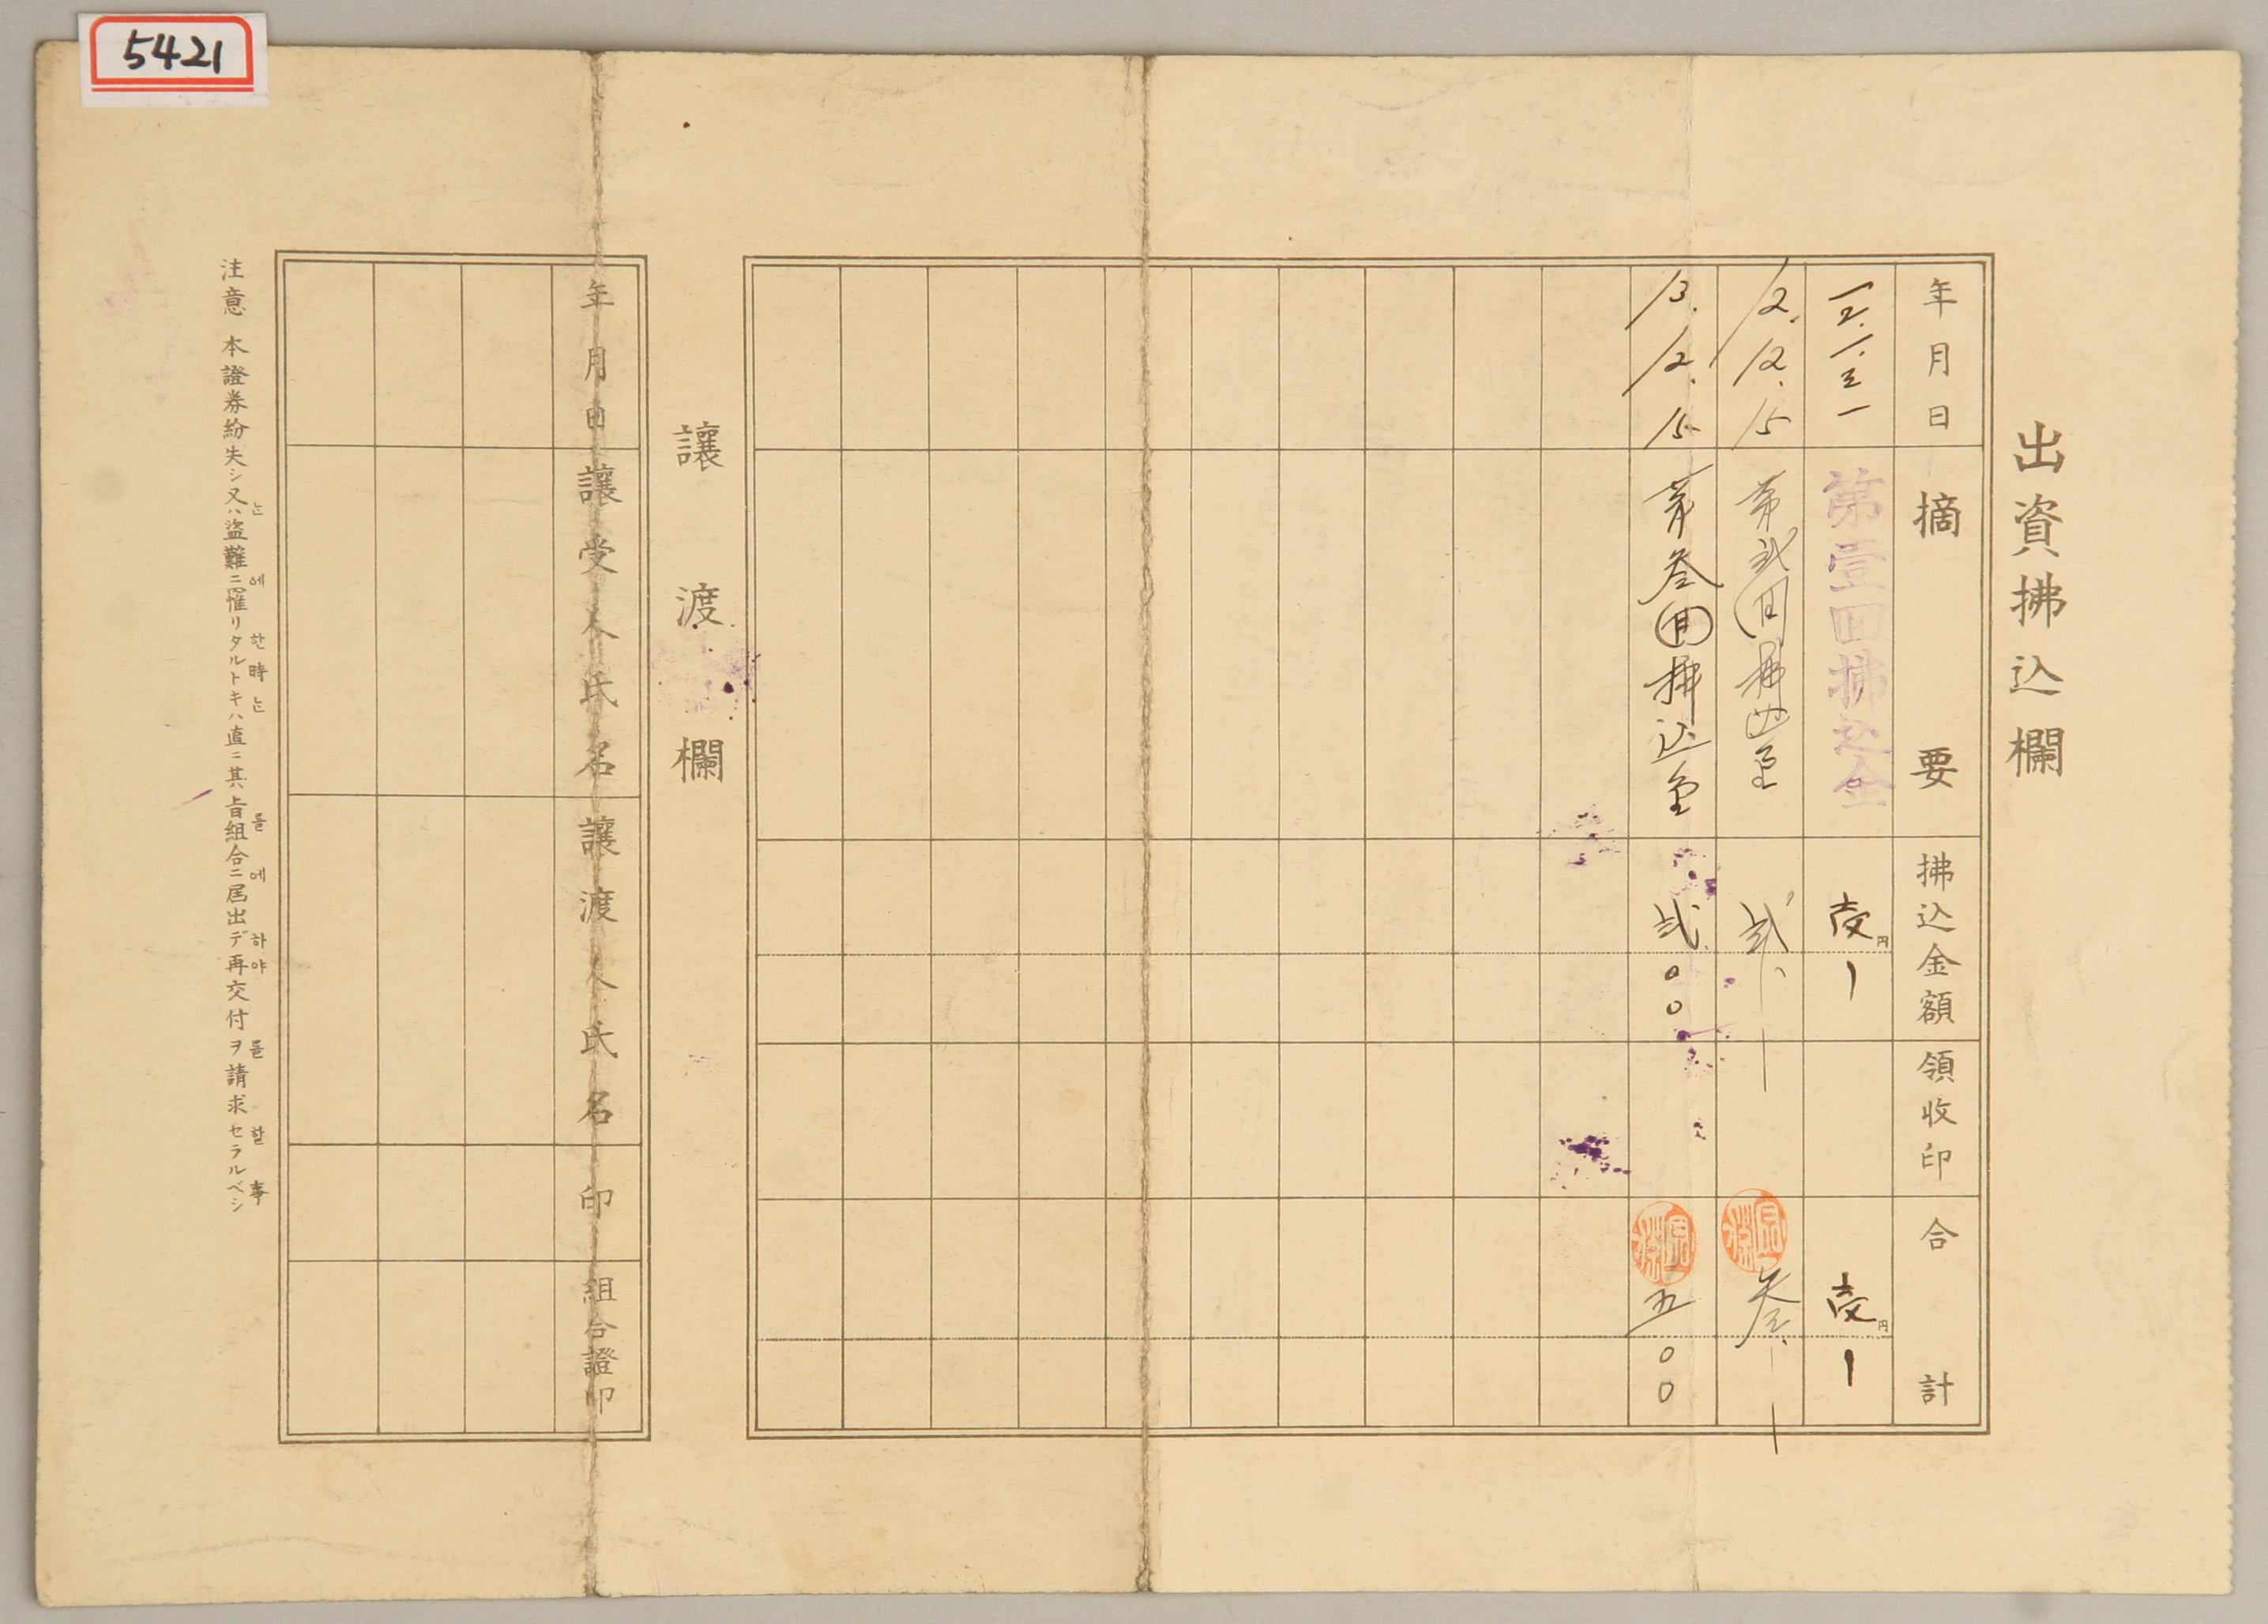 5421
出資拂込欄
年月日 摘要 拂込金額 領收印 合計
一二.一.三一 第壹回拂込金 壱円 一 壱円 一
12.12.15 第弐回拂込金 弐. 一 参. 一
13.12.15 第参回拂込金 弐.00 五00
讓渡欄
年月日 讓受人氏名 讓渡人氏名 印 組合證印
는 에 한 時 는 를 에 하야 를 할 事
注意 本證券紛失シ又ハ盜難ニ罹リタルトキハ直ニ其旨組合ニ届出デ再交付ヲ請求セラルベシ